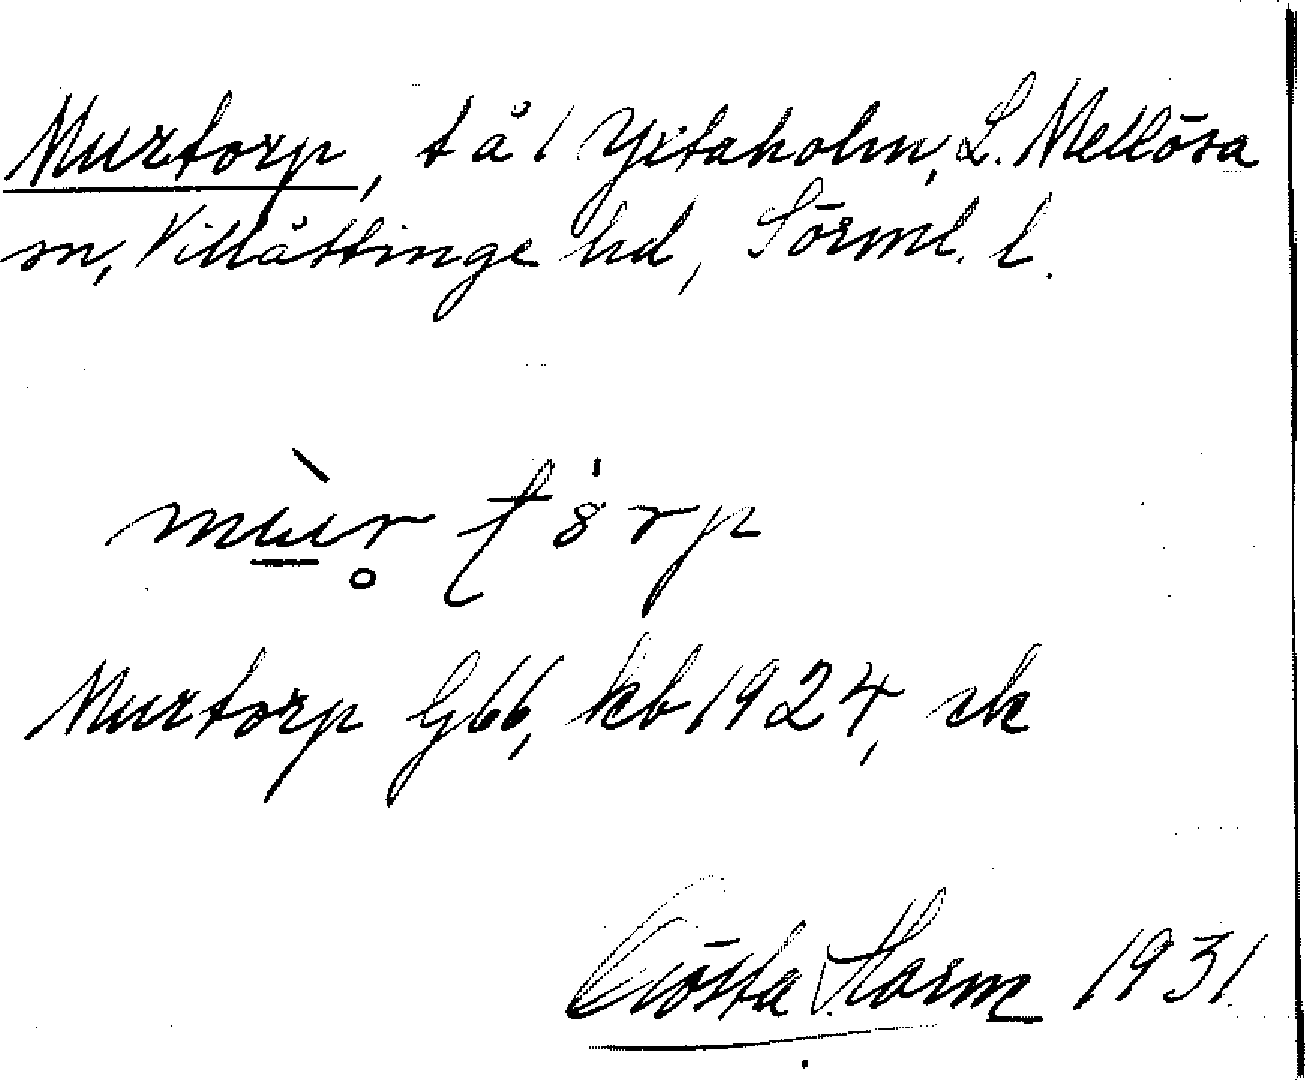 Murtorp, t å 1 Yxtaholm, L. Mellösa
sn, Villåttinge hd, Sörml. l.
mùr tȣrp
Murtorp G66, kb 1924, sk
Gösta Storm 1931